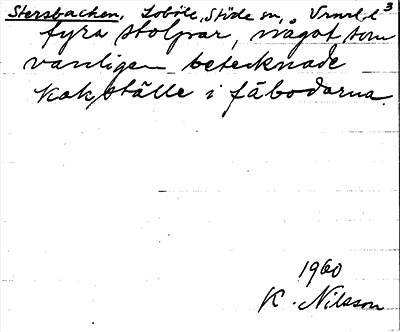 Stersbacken, Loböle, Stöde sn,
fyra stolpar, något som
vanligen betecknade
kokställe i fäbodarna.
1960
K. Nilsson